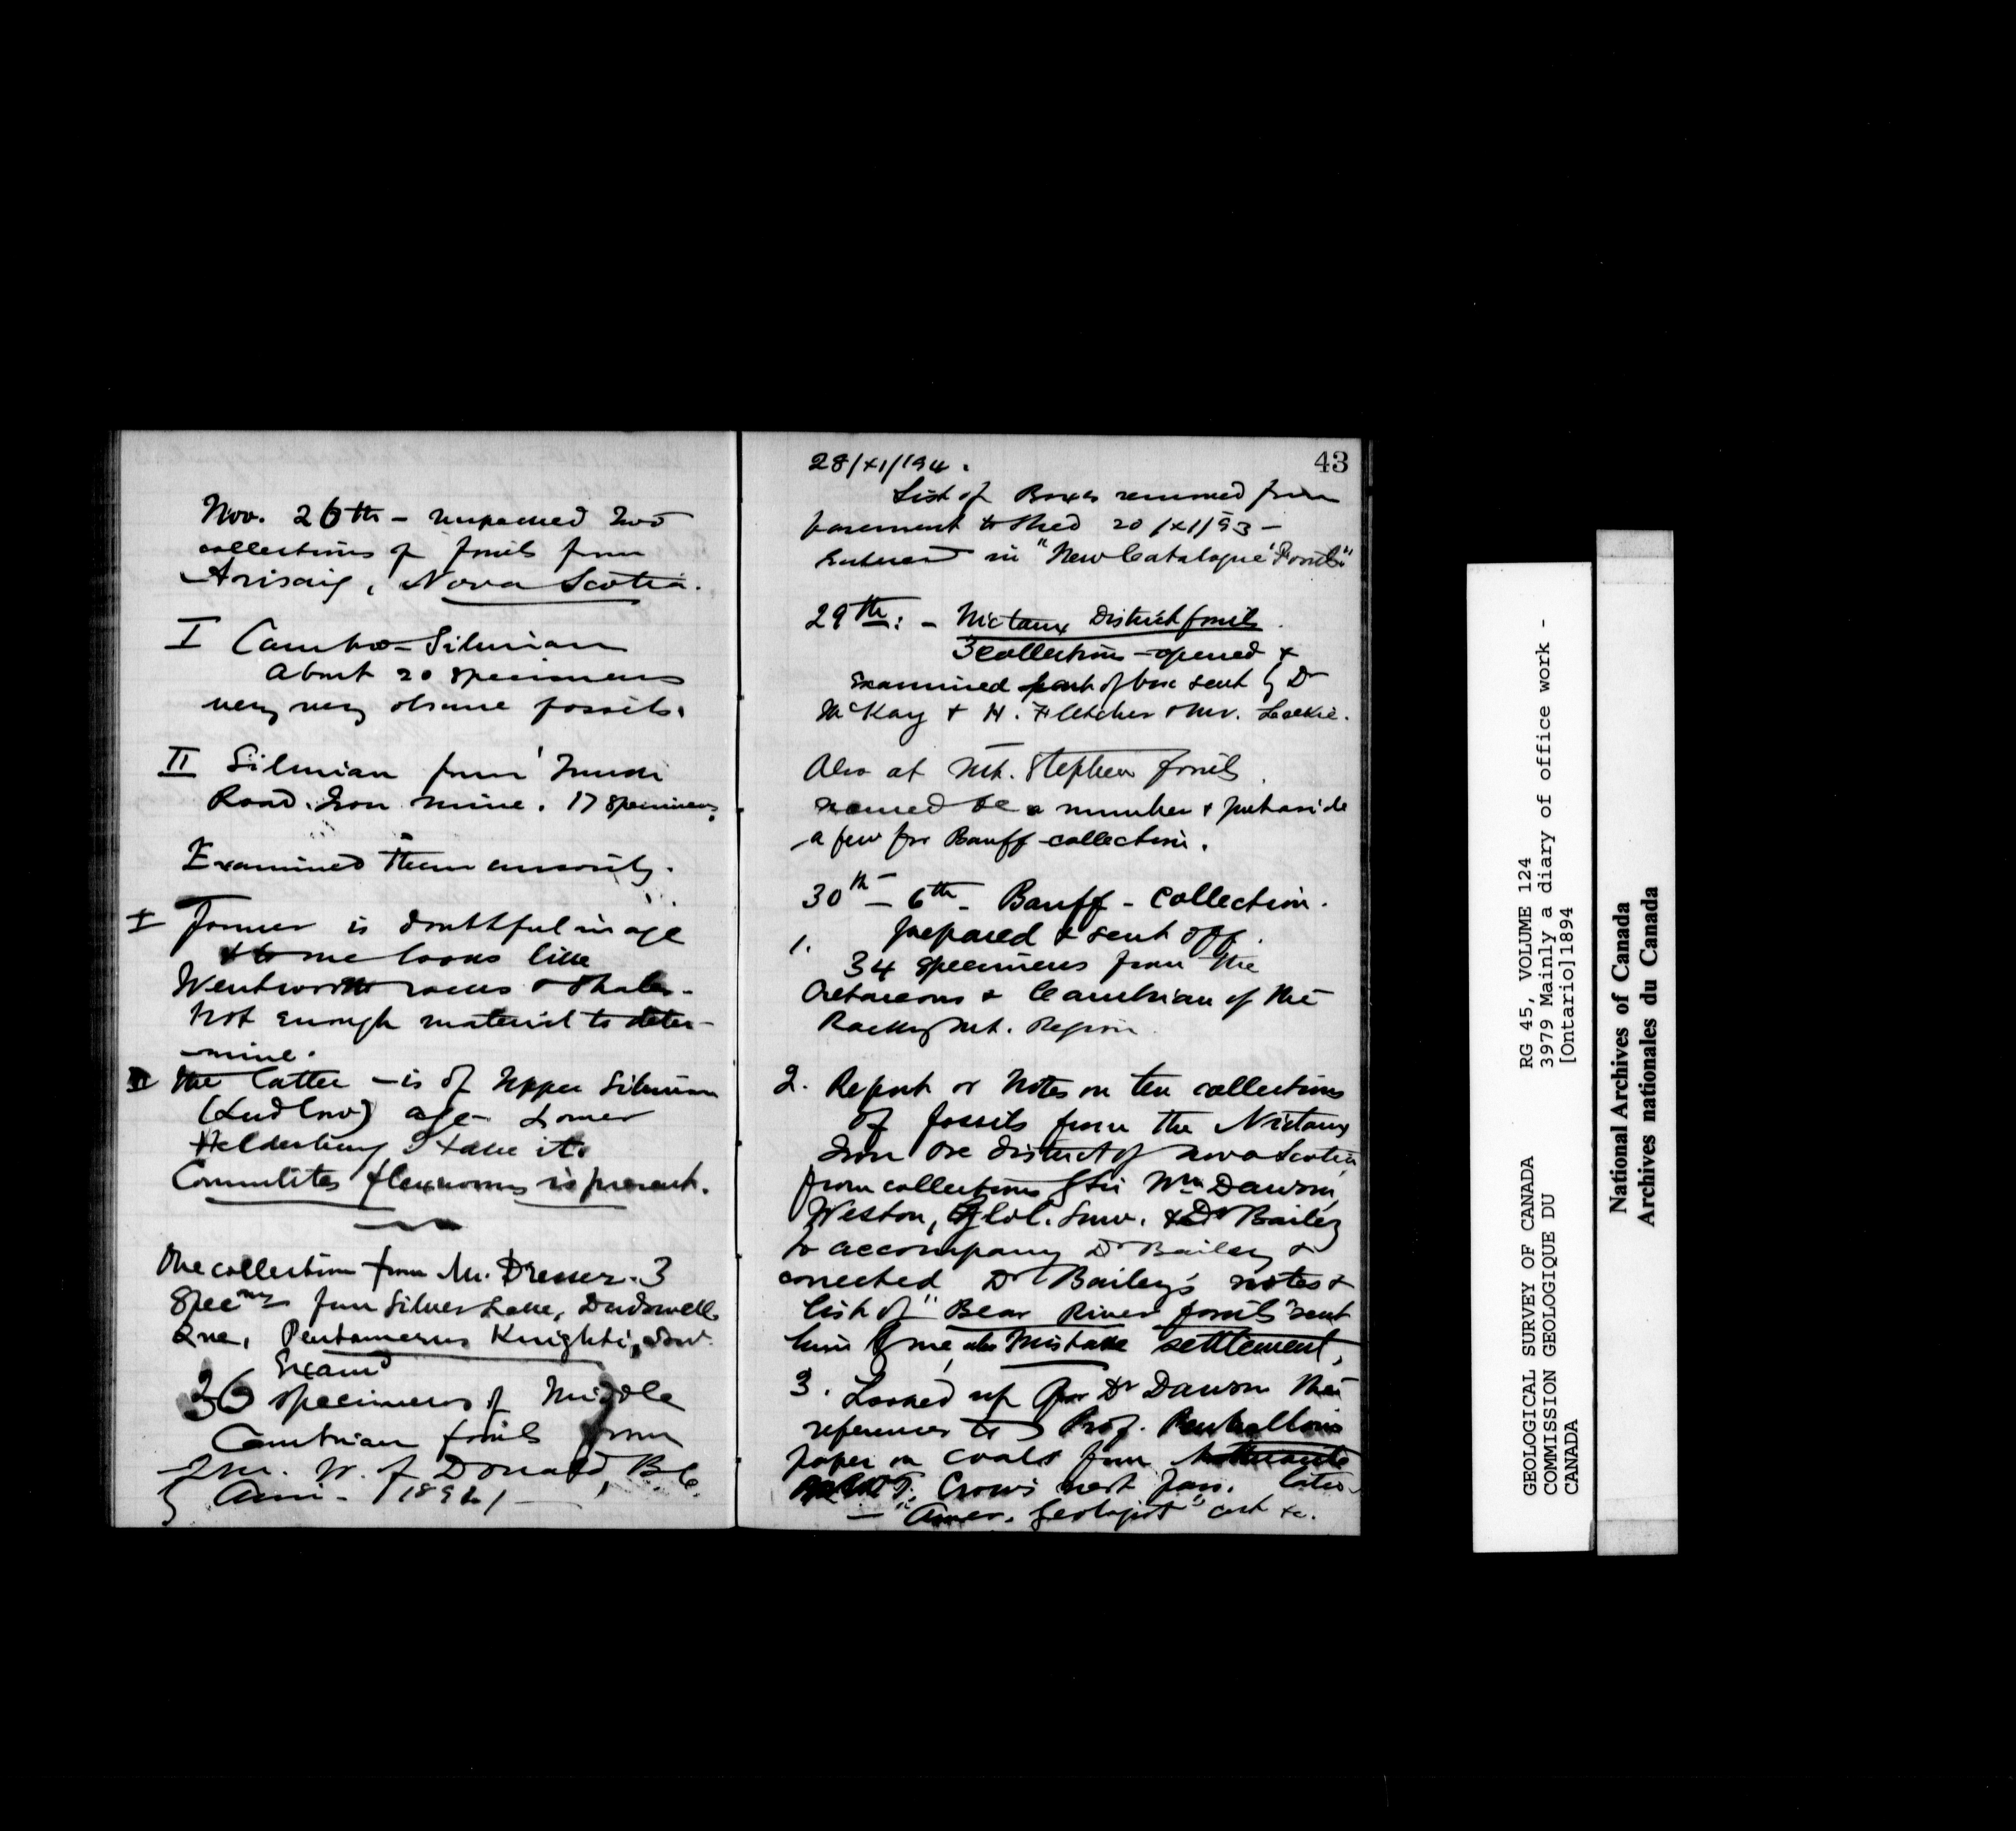 Nov. 26th - unpacked two
collections of fossils from
Arisaig, Nova Scotia.
I Cambro-Silurian
About 20 specimens
very very obscure fossils.
II Silurian from
Road. Iron mine. 17 specimens.
Examined them cursorily.
I Former is doubtful in age
& to me looks like
Wentworth rocks & shales.
Not enough material to deter-
mine.
II The latter - is of Upper Silurian
(Ludlow) age - Lower
Helderberg I take it.
Cornulites flexuosus is present.
One collection from Mr. Dresser. 3
Specmns from Silver Lake, Dudswell
Que, Pentamerus Knighti, Sow.
Examd
36 specimens of Middle
Cambrian fossils from
2 m. W. of Donald, B.C.
Ami - 1894
43
28/XI/'94.
List of Boxes removed from
basement to shed 20/XI/93 -
Entered in "New Catalogue Fossils"
29th: - Nictaux District fossils.
3 collections - opened &
examined part of box sent by Dr
McKay & H. Fletcher & Mr. Leckie.
Also at Mt. Stephen fossils.
named a number & put aside
a few for Banff collection.
30th - 6th - Banff - Collection.
1. prepared & sent off.
34 specimens from the
Cretaceous & Cambrian of the
Rocky Mt. Region.
2. Report or Notes on ten collections
of fossils from the Nictaux
Iron Ore district of Nova Scotia,
from collections by Sir Wm Dawson,
Weston, Geol. Surv. & Dr Bailey
to accompany Dr Bailey &
corrected Dr Bailey's notes &
list of "Bear River fossils" sent
him by me, also Mistake settlement,
3. Looked up for Dr Dawson the
references to Prof. Penhallow's
paper on coals from
Crow's nest pass.
- "Amer. Geologist"
GEOLOGICAL SURVEY OF CANADA
COMMISSION GEOLOGIQUE DU
CANADA
RG 45, VOLUME 124
3979 Mainly a diary of office work -
[Ontario]1894
National Archives of Canada
Archives nationales du Canada